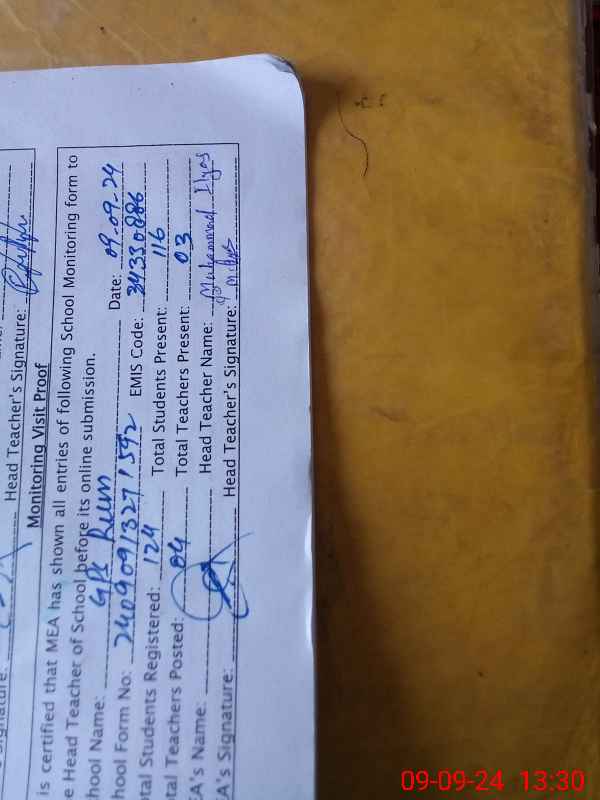 Head Teacher's Signature:
Monitoring Visit Proof
is certified that MEA has shown all entries of following School Monitoring form to
e Head Teacher of School before its online submission.
hool Name: GPS Date: 09-09-24
hool Form No: 24090913271592 EMIS Code: 34330886
tal Students Registered: 124 Total Students Present: 116
tal Teachers Posted: 04 Total Teachers Present: 03
EA's Name: Head Teacher Name: Muhammad Ilyas
A's Signature: Head Teacher's Signature: M. Ilyas
09-09-24 13:30